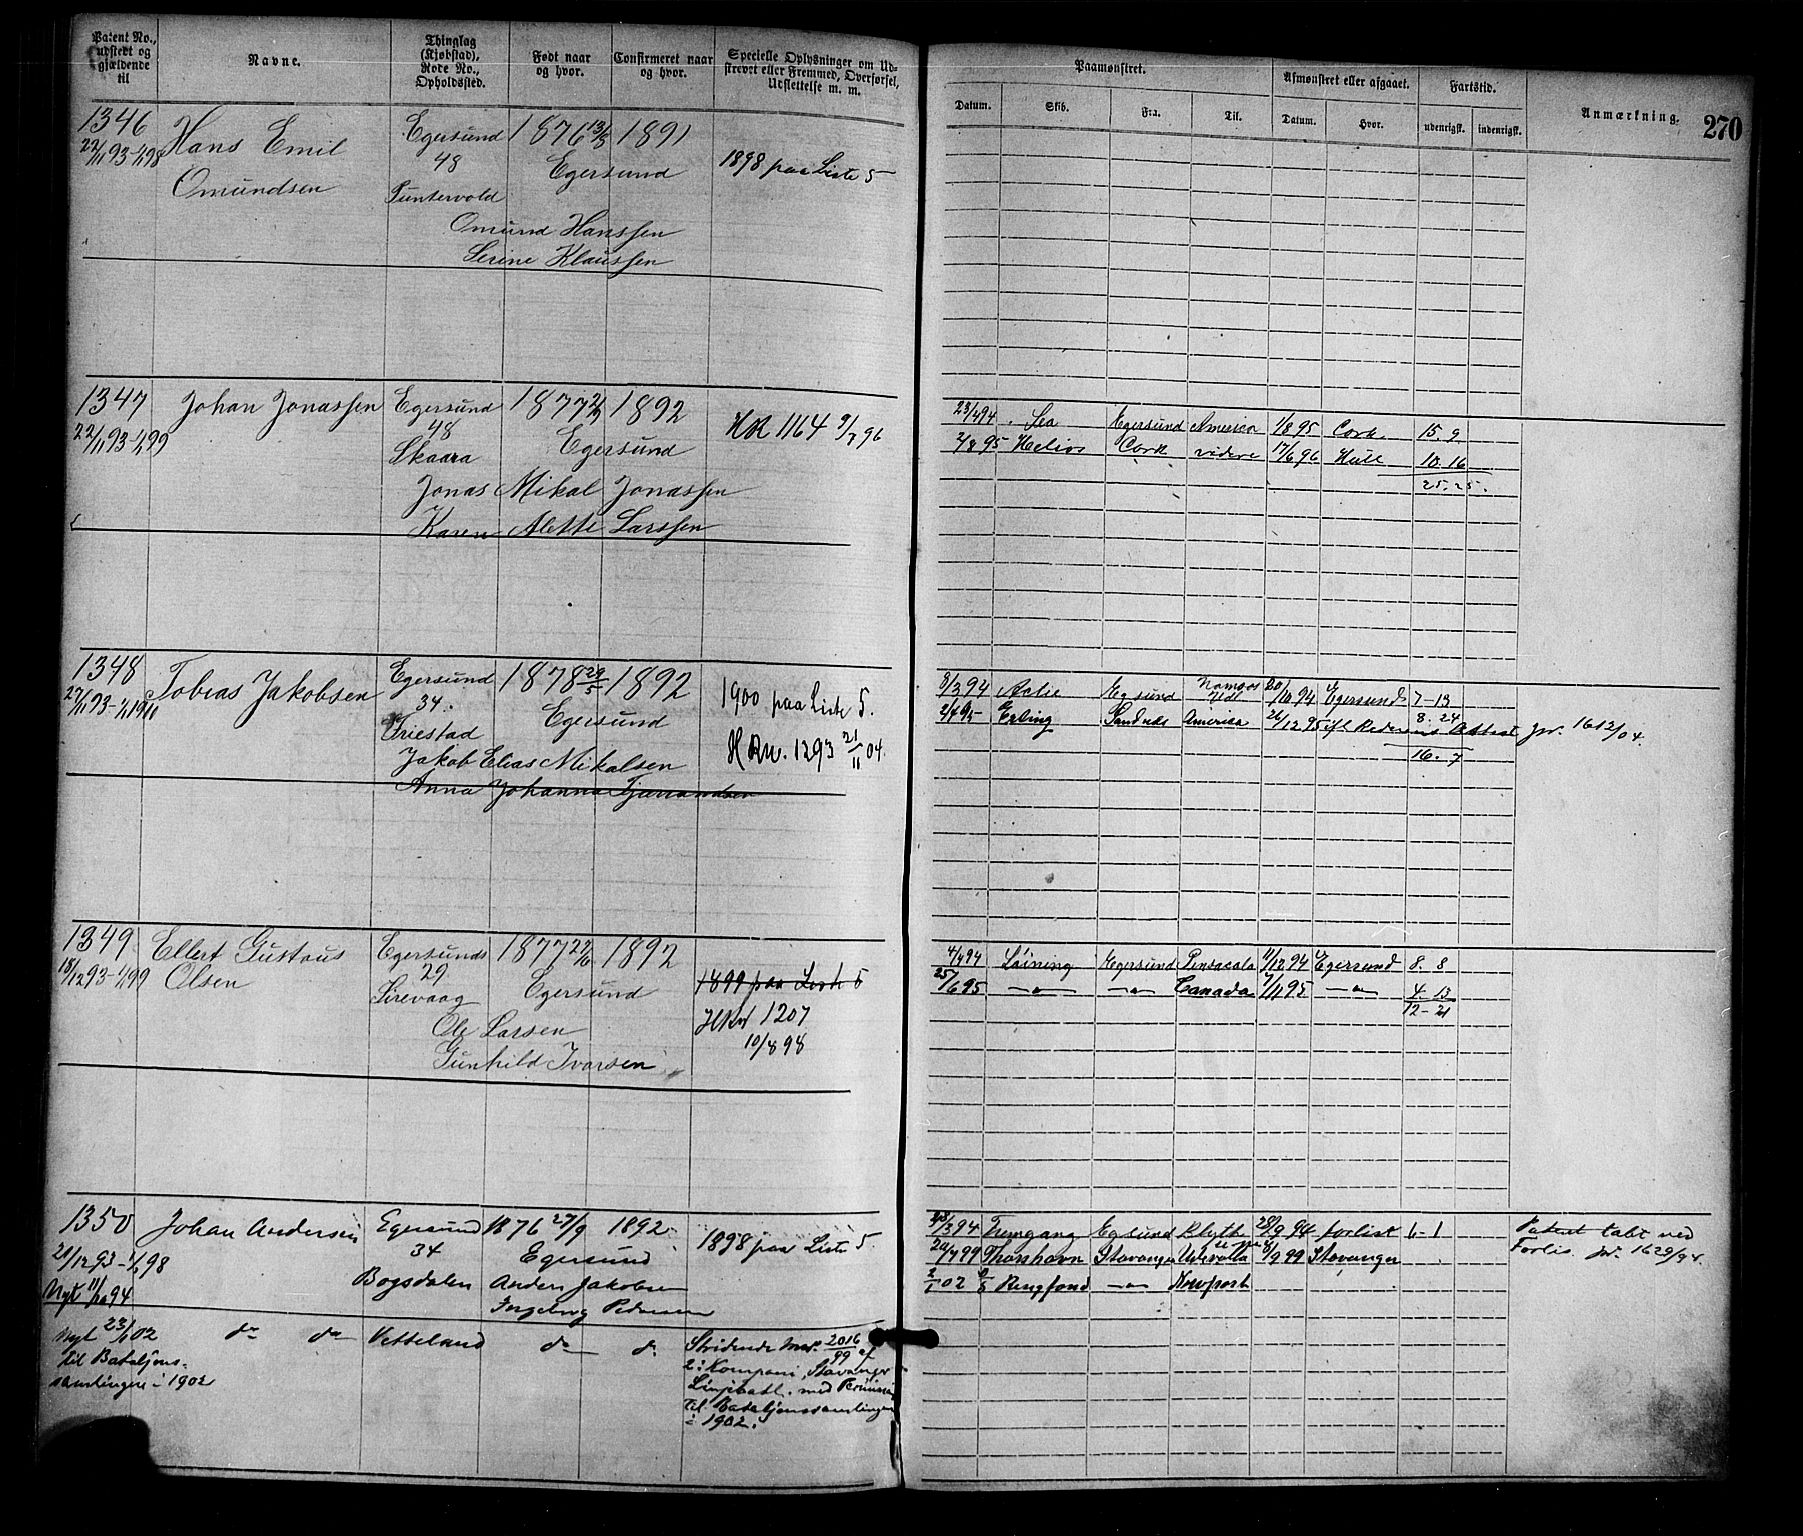 Patent No., udstedt og gjældende til
Navne.
Thinglag (Kjøbstad), Rode No., Opholdssted.
Født naar og hvor.
Confirmeret naar og hvor.
Specielle Oplysninger om Udstrevet eller Fremmed, Overførsel, Udslettelse m. m.
Paamønstret.
Afmønstret eller afgaaet.
Fartstid.
Anmærkning.
270
Datum.
Skib.
Fra.
Til.
Datum.
Hvor.
udenrigsk.
indenrigsk.
1346 Hans Emil Egersund 1876 13/5 1891
22/11 93-1/1 98 Omundsen 48 Egersund 1898 paa Liste 5
Puntervold
Omund Hanssen
Serine Klaussen
1347 Johan Jonassen Egersund 1877 2/9 1892 HR 1164 9/7 96
22/11 93-1/1 99 48 Egersund
Skaara
Jonas Mikal Jonassen
Karen Alette Larssen
23/4 94 Lea Egersund America 1/8 95 Cork 15. 9
2/8 95 Helios Cork videre 17/6 96 Hull 10. 16
25. 25.
1348 Tobias Jakobsen Egersund 1878 29/5 1892 1900 paa Liste 5.
27/11 93-1/1 1900 34. Egersund
Friestad HRN. 1293 21/11 04.
Jakob Elias Mikalsen
Anna Johanna Tjørandsen
8/3 94 Actie Egsund Namsos 20/10 94 Egersund 7-13
2/4 95 Erling Sandnes America 26/12 95 ifl Rederens Attest Jr. 1612/04.
8. 24
16. 7
1349 Ellert Gustavus Egersunds 1877 22/6 1892
18/12 93-1/1 99 Olsen 29 Egersund 1899 paa Liste 5
Sirevaag HRN 1207
Ole Larsen 10/8 98
Gunhild Ivarsen
4/4 94 Lövning Egersund Pensacola 11/12 94 Egersund 8. 8
25/6 95 —"— —"— Canada 7/11 95 —"— 4. 13
12-21
1350 Johan Andersen Egersund 1876 27/9 1892 1898 paa Liste 5.
20/12 93-1/1 98 34 Egersund
Nyt 11/10 94 Bogsdalen Anders Jakobsen
Ingeborg Pedersen
/3 94 Fremgang Egsund Blyth 28/9 94 forlist 6-1 Patent tabt ved
Forlis. Jr. 1629/94.
20/7 99 Thorshavn Stavanger /9 99 Stavanger
2/1 02 Ringfond —"— Newport
Nyt 23/1 02 do do Vetteland do do Stridende Nr. 2016/99 af
til Bataljons- 2: Kompani, Stavanger
samlingen i 1902 Linjebatl. med
til Bataljonssamlingen
i 1902.